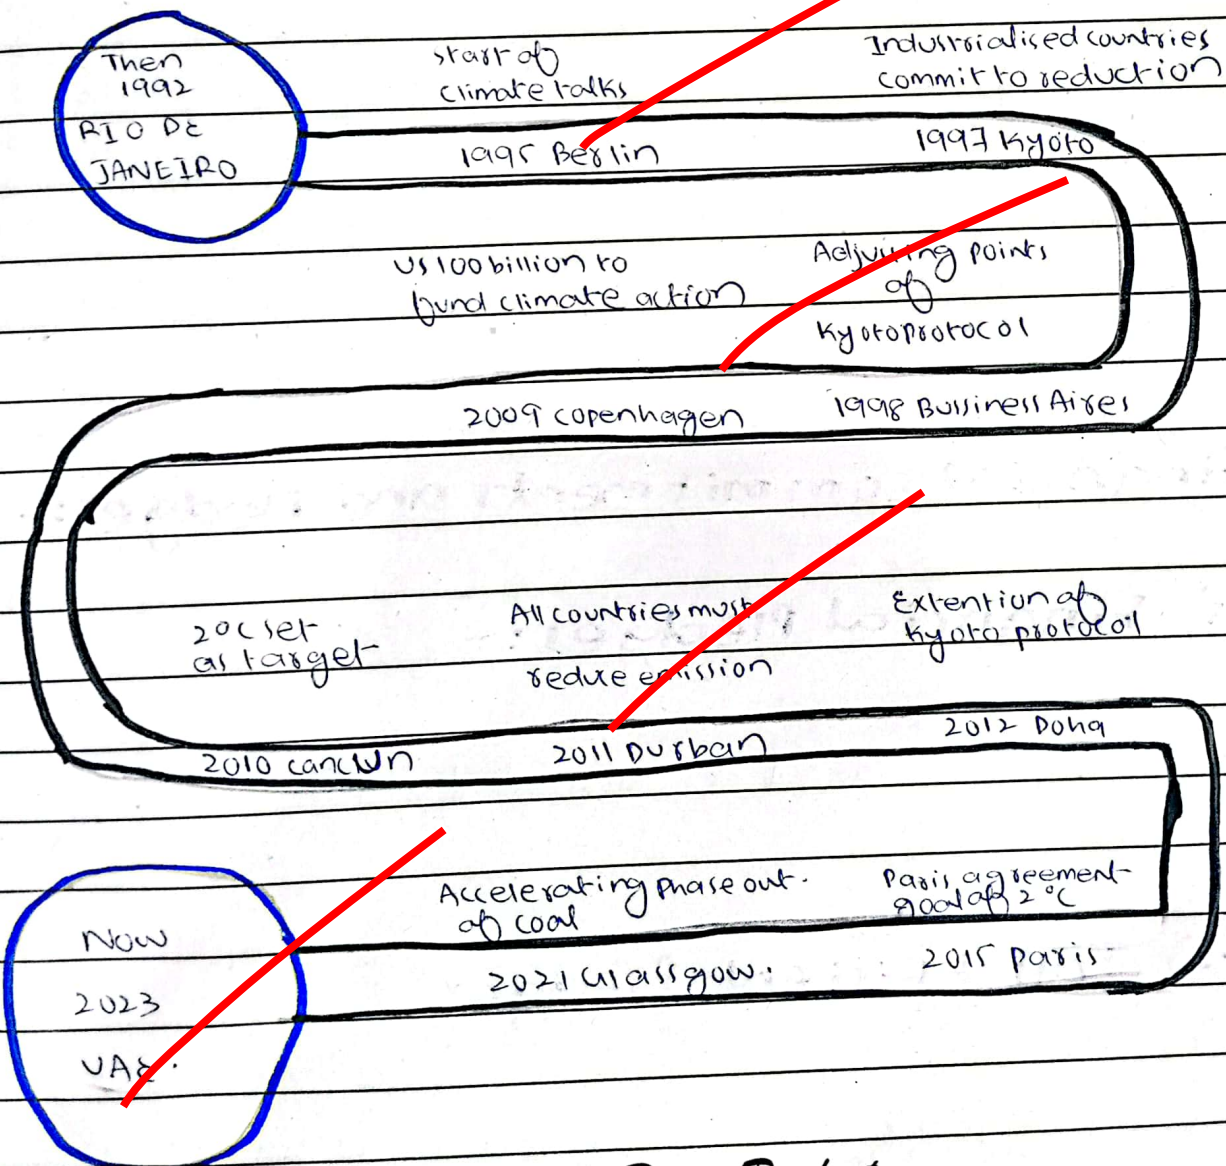 Then
1992
RIO DE
JANEIRO
start of
climate talks
Industrialised countries
commit to reduction
1995 Berlin
1997 Kyoto
US 100 billion to
fund climate action
Adjusting points
of
Kyoto protocol
2009 Copenhagen
1998 Bussiness Aires
2°C set
as target
All countries must
reduce emission
Extention of
Kyoto protocol
2010 Cancun
2011 Durban
2012 Doha
Accelerating phase out.
of coal
Paris agreement
goal of 2°C
Now
2023
UAE.
2021 Glassgow.
2015 Paris